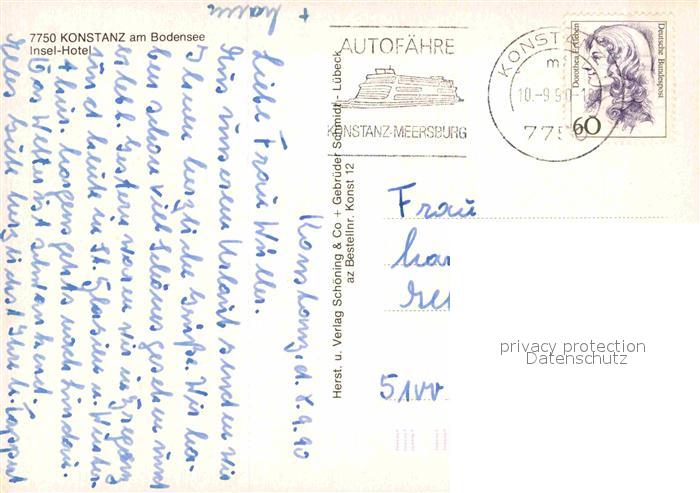 7750 KONSTANZ am Bodensee
Insel-Hotel
AUTOFÄHRE
KONSTANZ-MEERSBURG
KONSTA
10.-9.90-1
775
Deutsche Bundespost
Dorothea Erxleben
60
Herst. u. Verlag Schöning & Co + Gebrüder Schmidt - Lübeck
az Bestellnr. Konst 12
Konstanz, d. 8.9.90
Liebe Frau Willer.
Aus unserem Urlaub senden wir
Ihnen herzliche Grüße. Wir ha-
ben schon viel Schönes gesehen und
erlebt. Gestern waren wir in Bregenz
und heute in St. Blasien u. Winter-
hier. Morgens gehts nach Lindau.
Das Wetter ist schwankend.
Alles Gute
Frau
51
privacy protection
Datenschutz